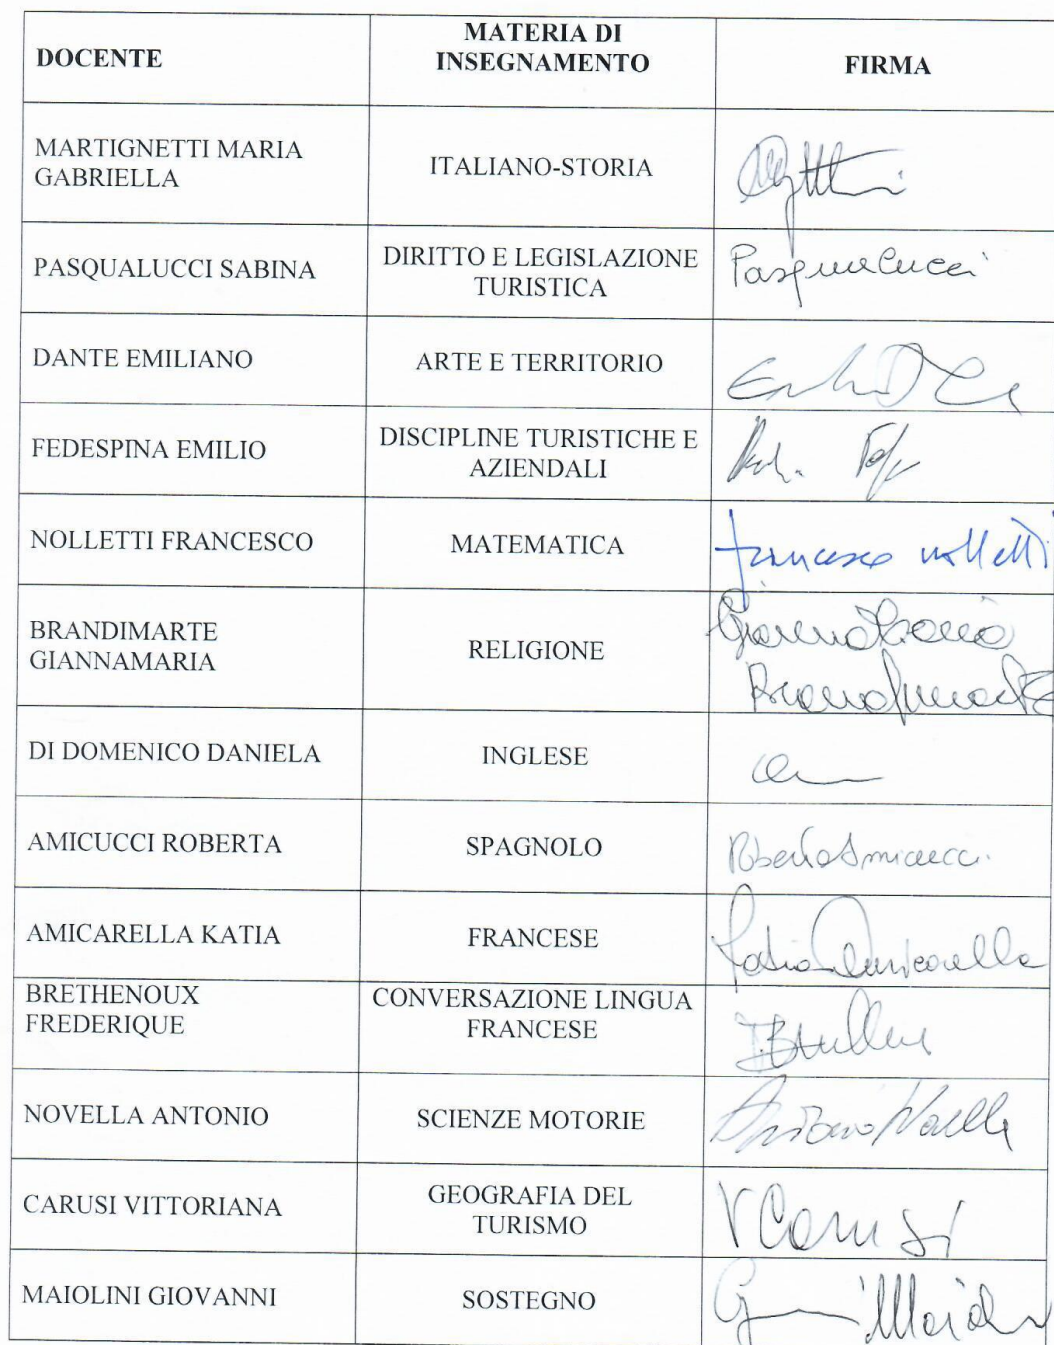 DOCENTE
MATERIA DI
INSEGNAMENTO
FIRMA
MARTIGNETTI MARIA
GABRIELLA
ITALIANO-STORIA
PASQUALUCCI SABINA
DIRITTO E LEGISLAZIONE
TURISTICA
Pasqualucci
DANTE EMILIANO
ARTE E TERRITORIO
FEDESPINA EMILIO
DISCIPLINE TURISTICHE E
AZIENDALI
NOLLETTI FRANCESCO
MATEMATICA
francesco nolletti
BRANDIMARTE
GIANNAMARIA
RELIGIONE
Giannamaria
Brandimarte
DI DOMENICO DANIELA
INGLESE
AMICUCCI ROBERTA
SPAGNOLO
Roberta Amicucci
AMICARELLA KATIA
FRANCESE
Katia Amicarella
BRETHENOUX
FREDERIQUE
CONVERSAZIONE LINGUA
FRANCESE
NOVELLA ANTONIO
SCIENZE MOTORIE
Antonio Novella
CARUSI VITTORIANA
GEOGRAFIA DEL
TURISMO
V Carusi
MAIOLINI GIOVANNI
SOSTEGNO